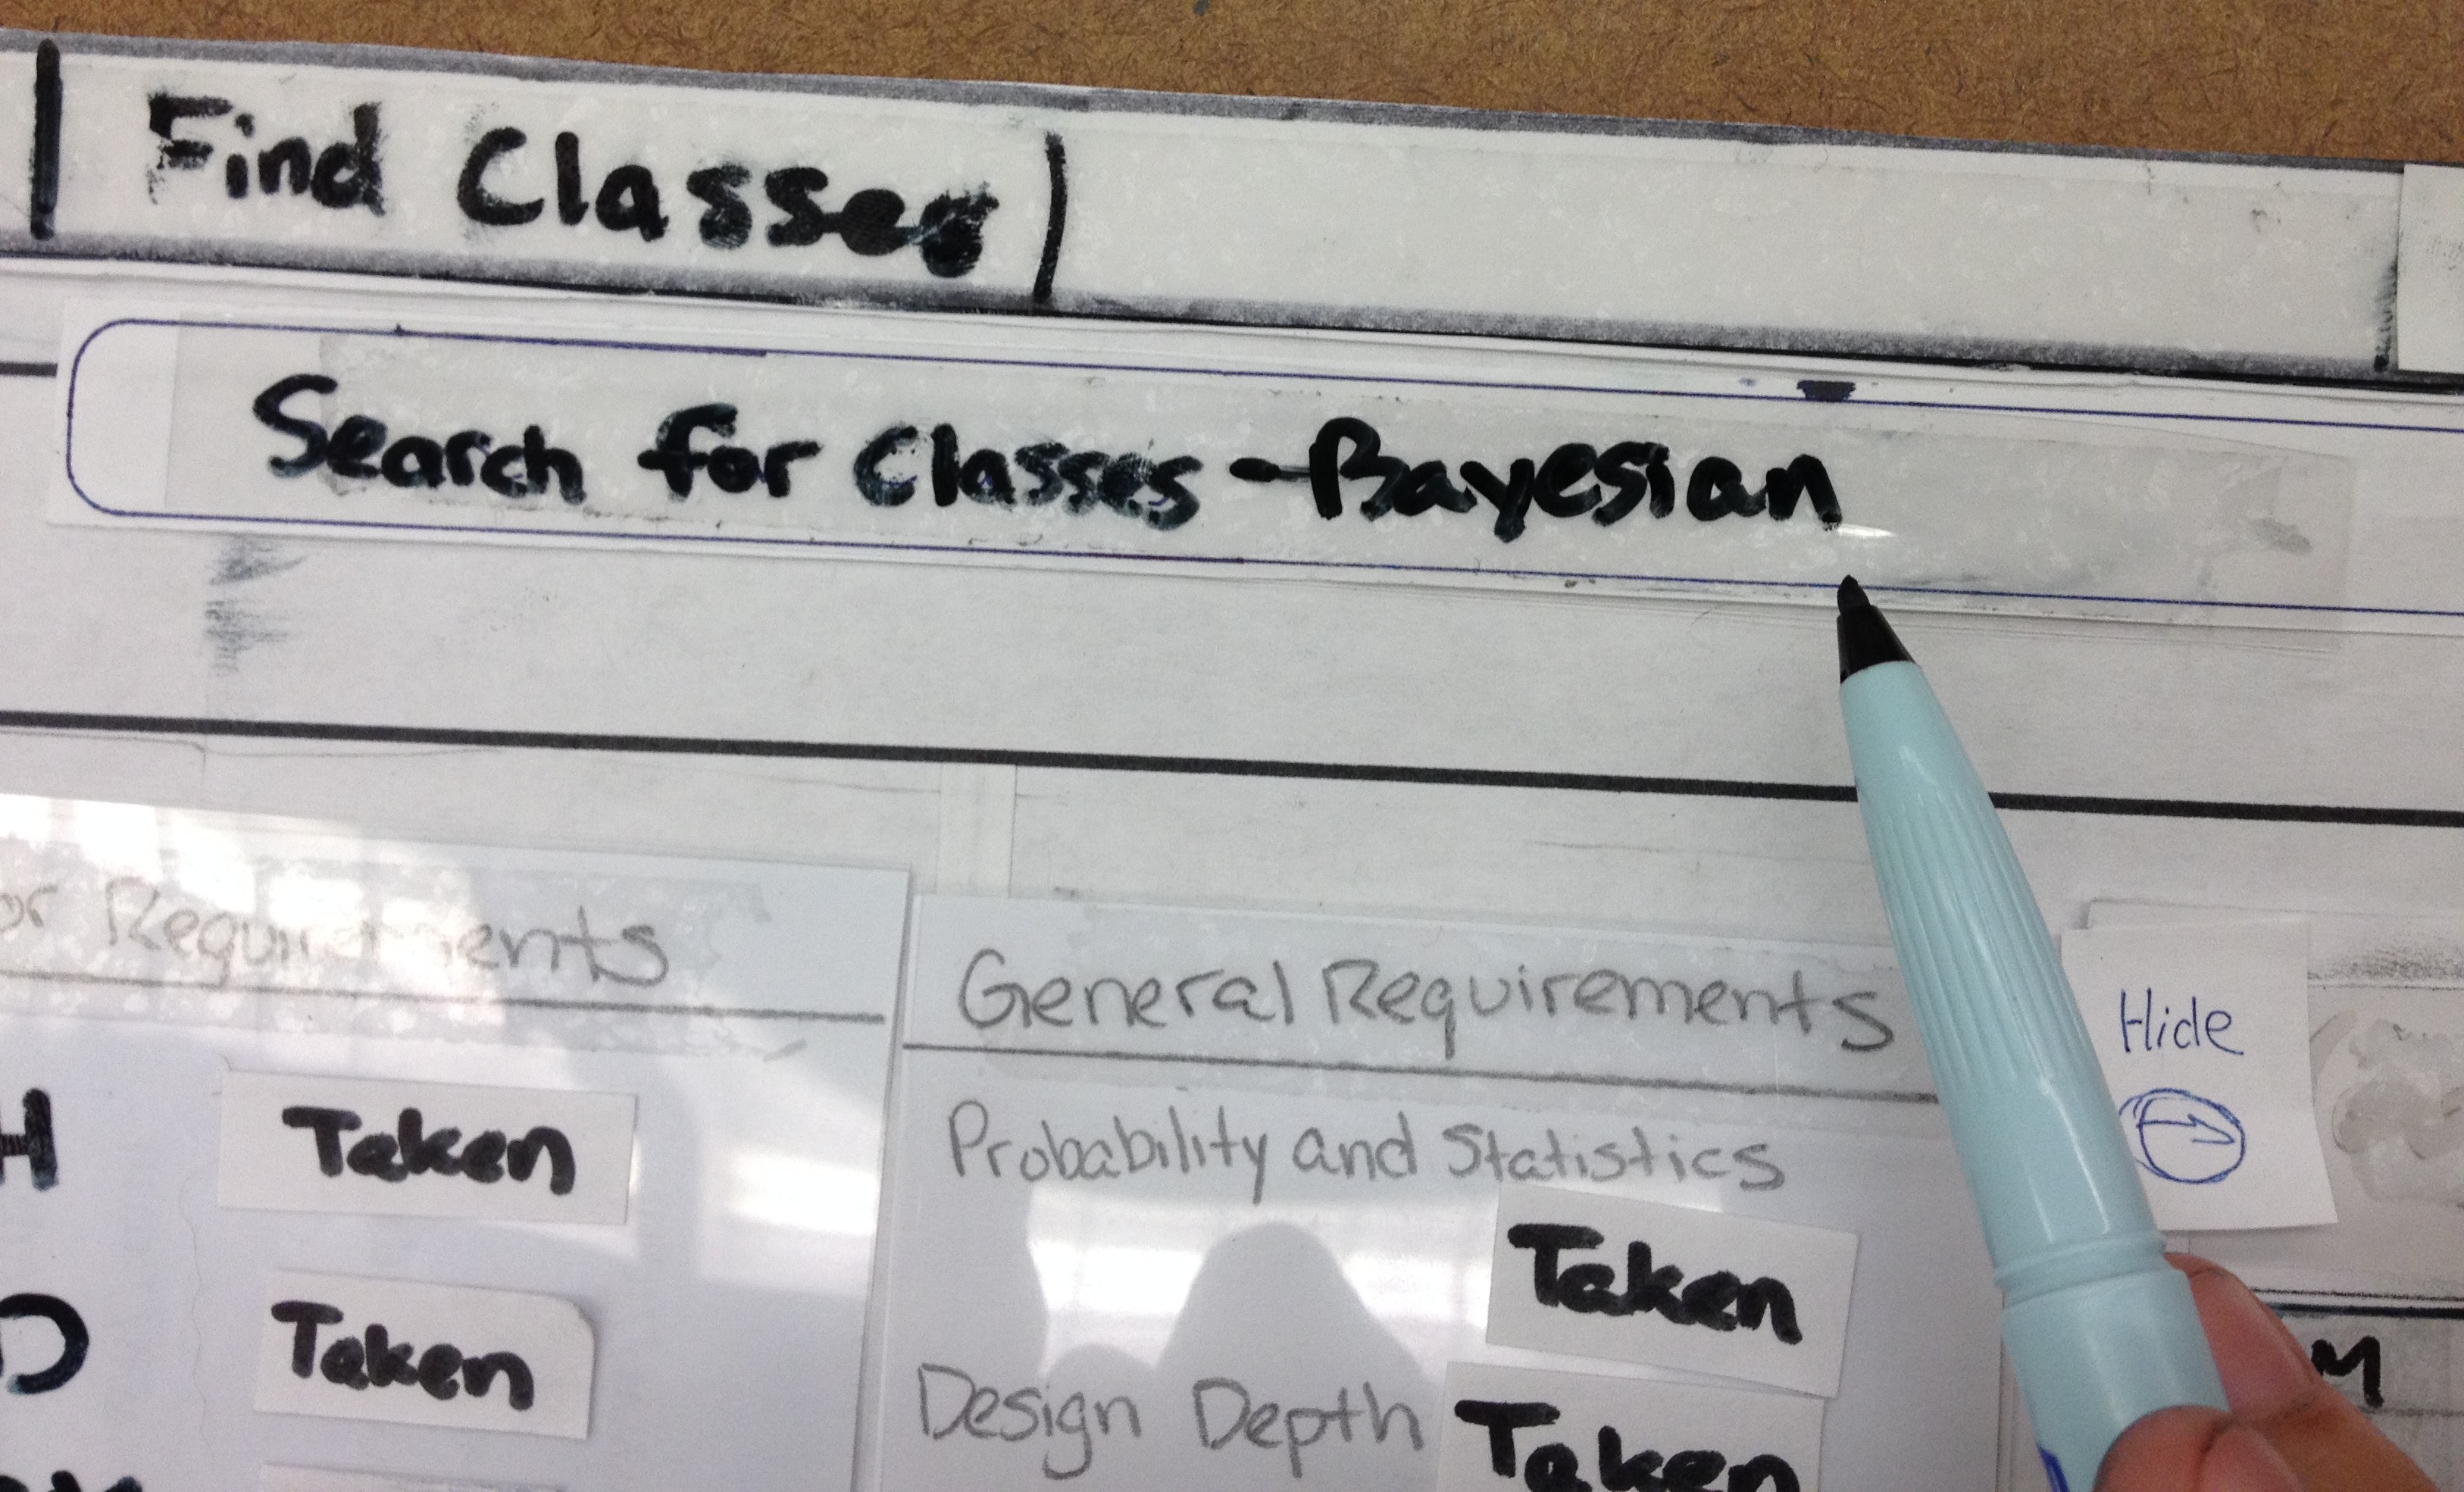 Find Classes
Search for Classes - Bayesian
Requirements
Taken
Taken
General Requirements
Probability and Statistics
Taken
Design Depth Taken
Hide